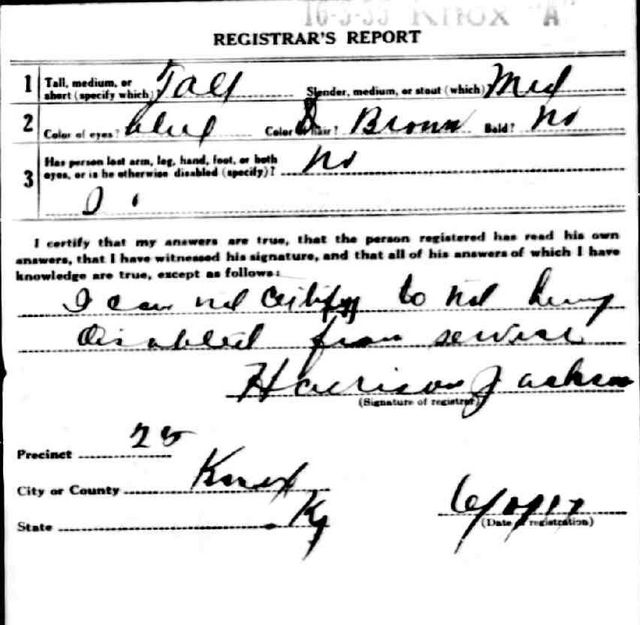 16-3-33 Knox "A"
REGISTRAR'S REPORT
1 Tall, medium, or short (specify which) Tall Slender, medium, or stout (which) Med
2 Color of eyes? blue Color of hair? Brown Bald? No
3 Has person lost arm, leg, hand, foot, or both eyes, or is he otherwise disabled (specify)? No
I certify that my answers are true, that the person registered has read his own
answers, that I have witnessed his signature, and that all of his answers of which I have
knowledge are true, except as follows:
I can not certify to not being
disabled from service
Harrison Jackson
(Signature of registrar)
Precinct 25
City or County Knox
State Ky
(Date of registration)